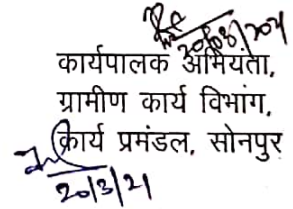 20/03/2021
कार्यपालक अभियंता,
ग्रामीण कार्य विभांग,
कार्य प्रमंडल, सोनपुर
20/3/21